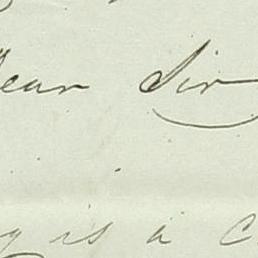 ear Sir
g is a C